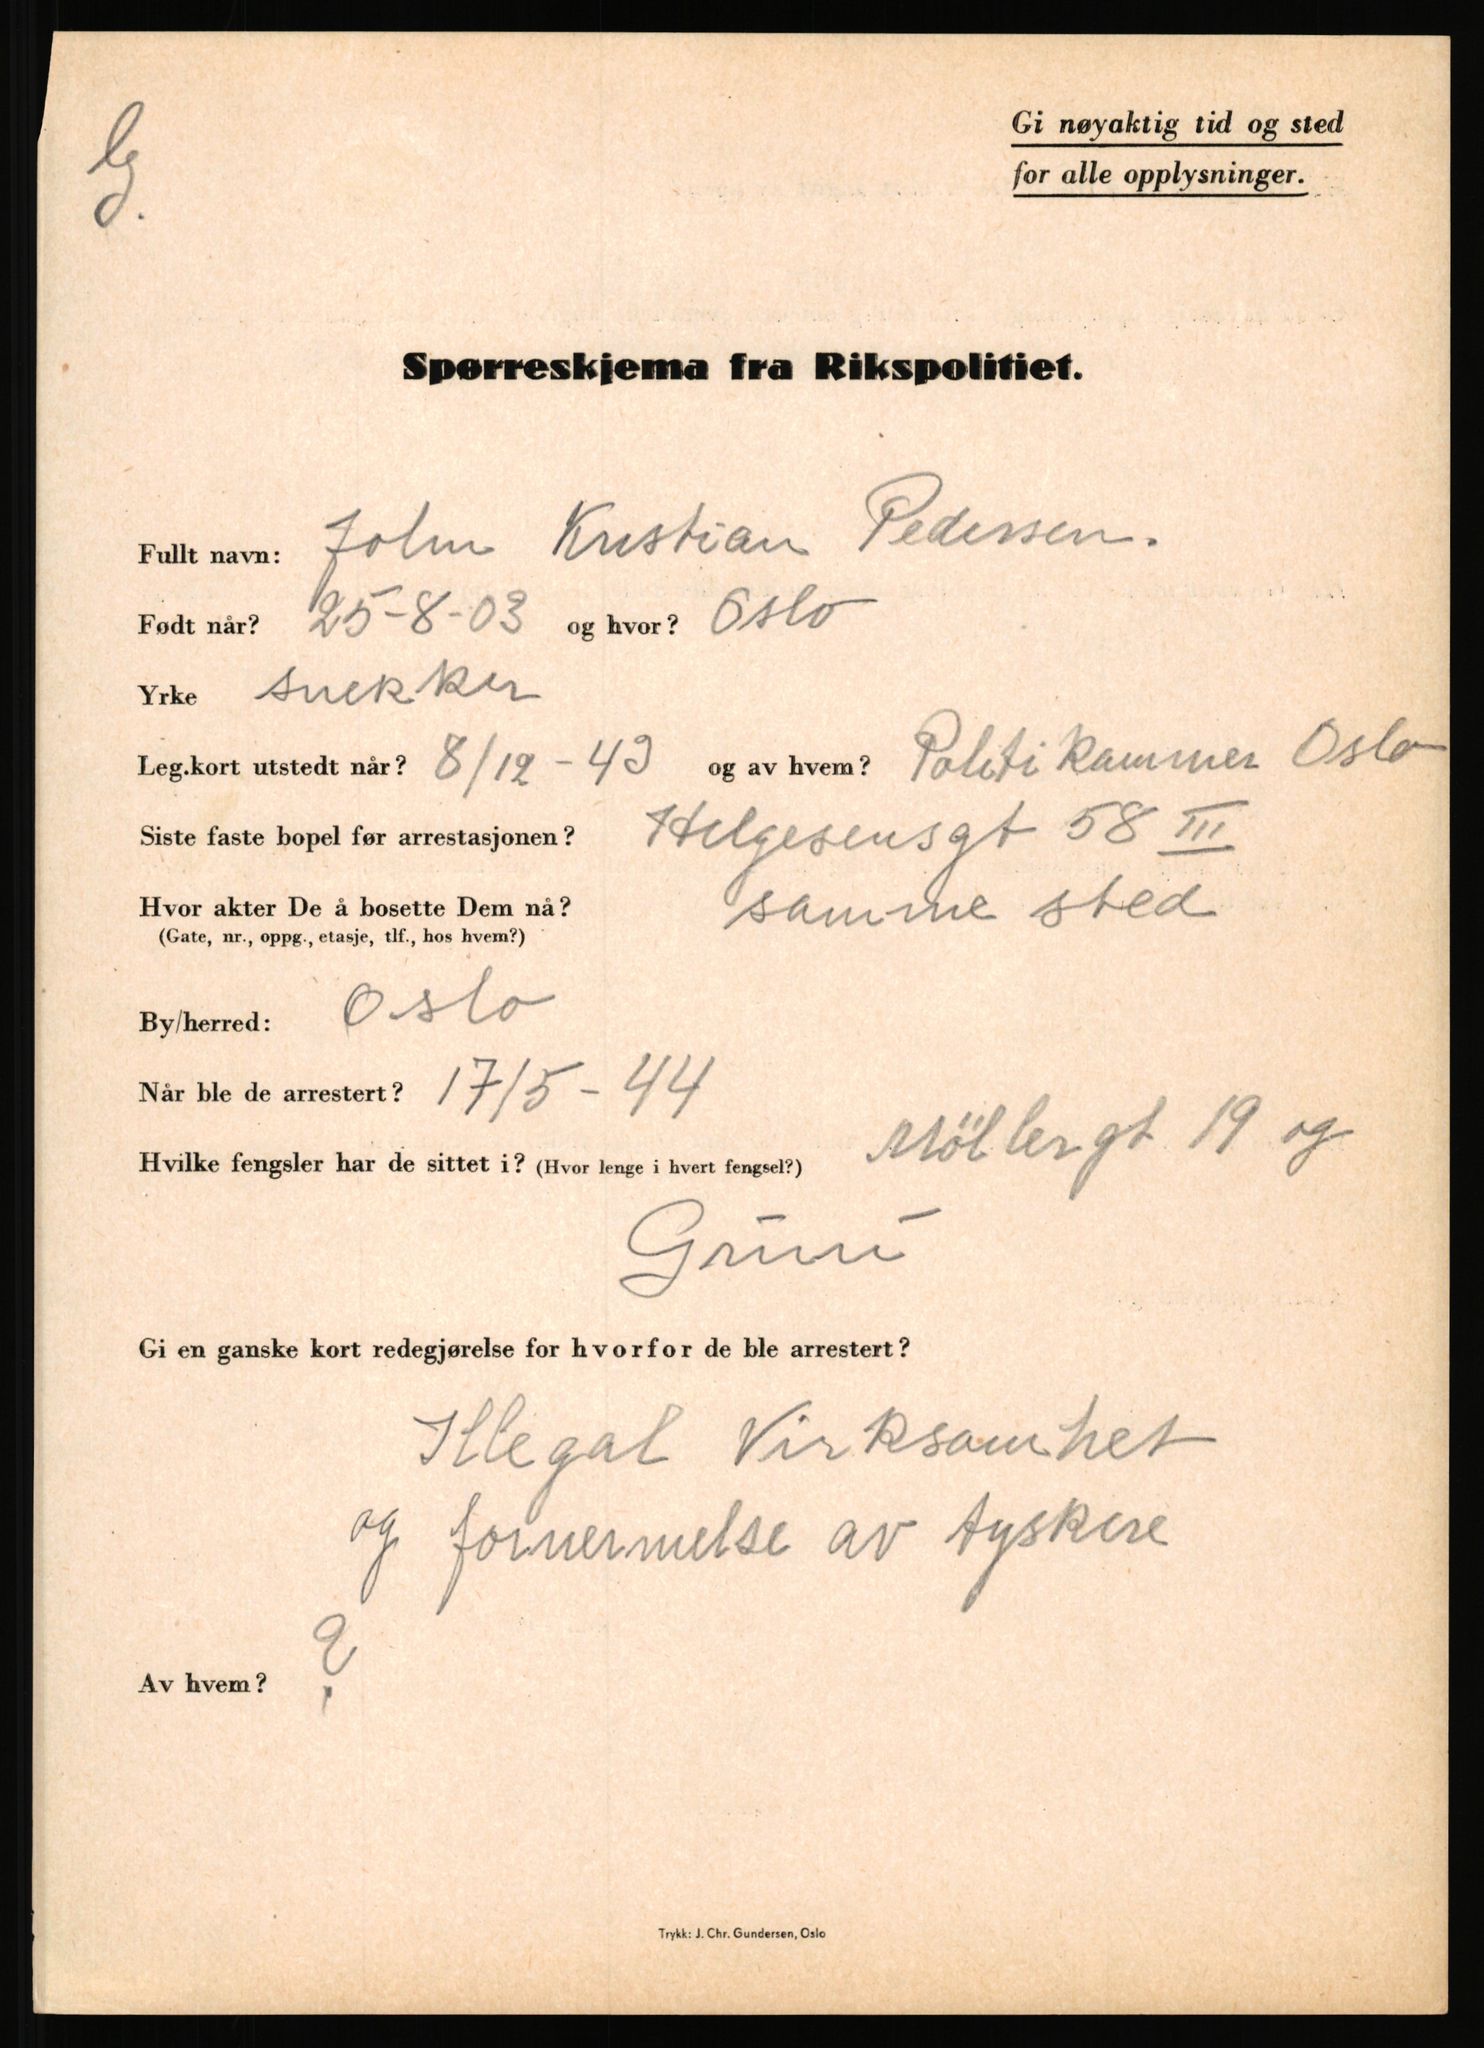 Gi nøyaktig tid og sted
for alle opplysninger.
Spørreskjema fra Rikspolitiet.
Fullt navn: John Kristian Pedersen.
Født når? 25-8-03 og hvor? Oslo
Yrke snekker
Leg.kort utstedt når? 8/12-43 og av hvem? Politikammer Oslo
Siste faste bopel før arrestasjonen? Helgesensgt 58 III
Hvor akter De å bosette Dem nå? samme sted
(Gate, nr., oppg., etasje, tlf., hos hvem?)
By/herred: Oslo
Når ble de arrestert? 17/5-44
Hvilke fengsler har de sittet i? (Hvor lenge i hvert fengsel?) Möllergt 19 og
Grini
Gi en ganske kort redegjørelse for hvorfor de ble arrestert?
Illegal Virksomhet
og fornermelse av tyskere
Av hvem? ?
Trykk: J. Chr. Gundersen, Oslo